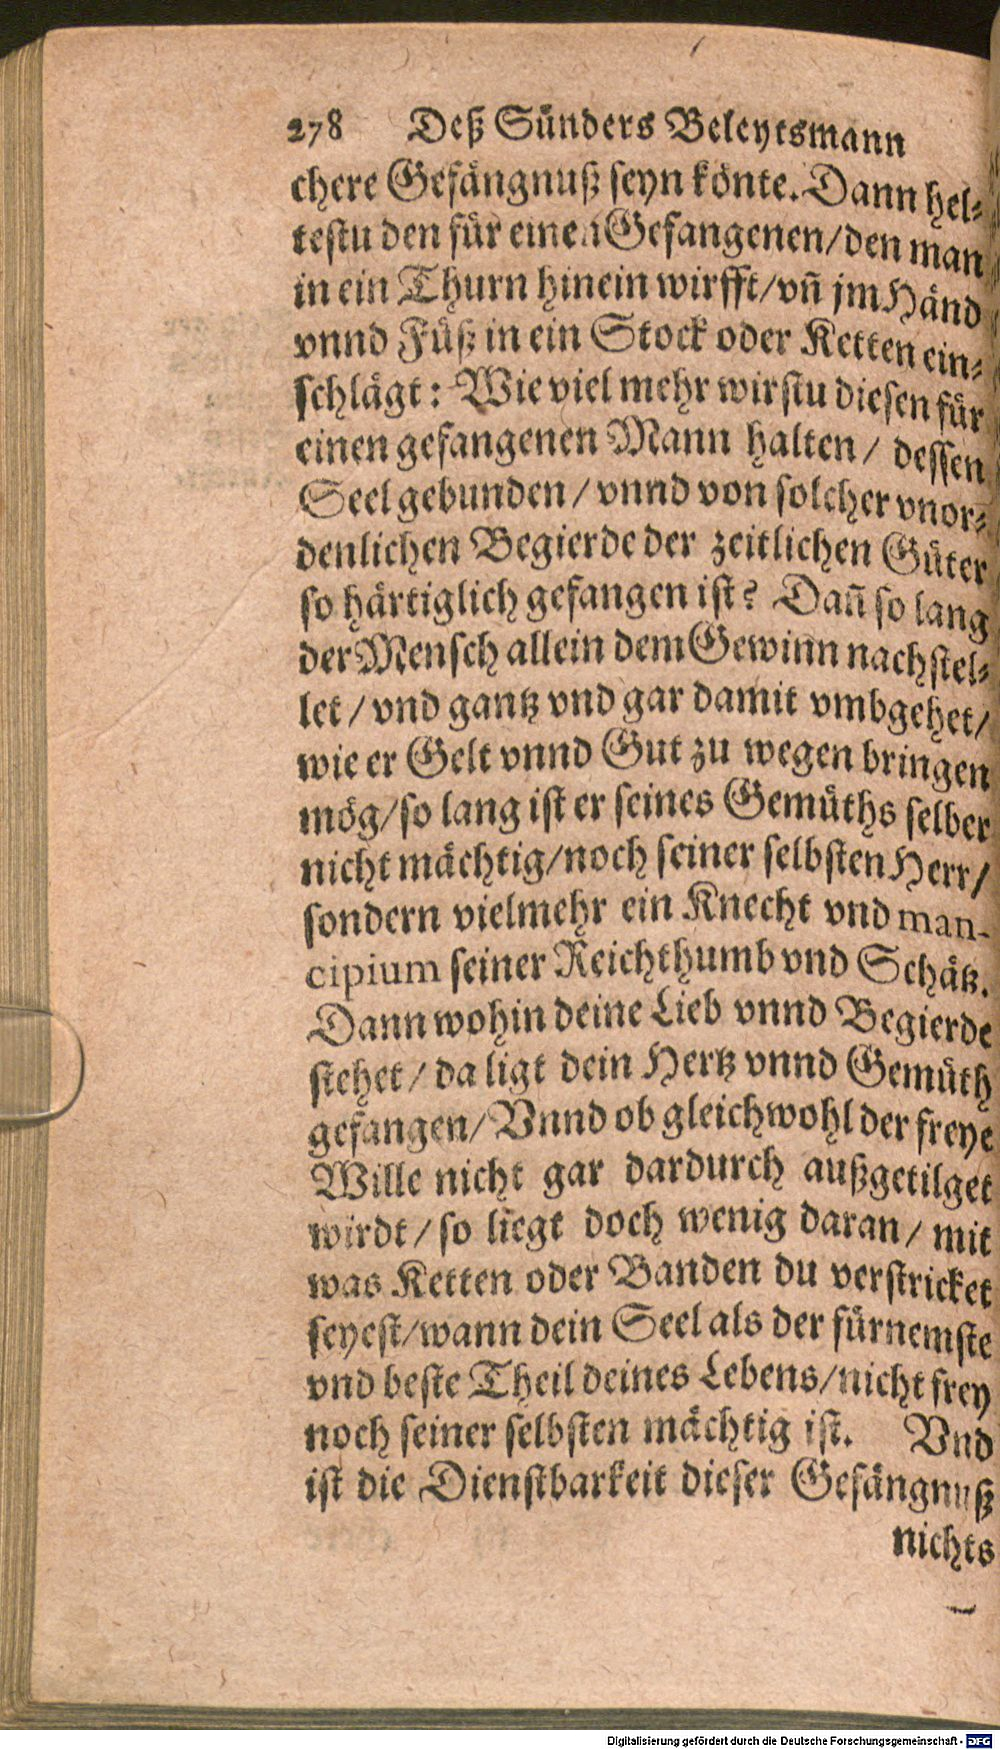 278 Deß Sünders Beleytsmann
chere Gefängnuß seyn könte. Dann hel-
testu den für einen Gefangenen/den man
in ein Thurn hinein wirfft/vñ jm Händ
vnnd Füß in ein Stock oder Ketten ein-
schlägt: Wie viel mehr wirstu diesen für
einen gefangenen Mann halten/ dessen
Seel gebunden/ vnnd von solcher vnor-
denlichen Begierde der zeitlichen Güter
so härtiglich gefangen ist? Dañ so lang
der Mensch allein dem Gewinn nachstel-
let/ vnd gantz vnd gar damit vmbgehet/
wie er Gelt vnnd Gut zu wegen bringen
mög/so lang ist er seines Gemüths selber
nicht mächtig/noch seiner selbsten Herr/
sondern vielmehr ein Knecht vnd man-
cipium seiner Reichthumb vnd Schätz.
Dann wohin deine Lieb vnnd Begierde
stehet/ da ligt dein Hertz vnnd Gemüth
gefangen/ Vnnd ob gleichwohl der freye
Wille nicht gar dardurch außgetilget
wirdt/ so liegt doch wenig daran/ mit
was Ketten oder Banden du verstricket
seyest/wann dein Seel als der fürnemste
vnd beste Theil deines Lebens/nicht frey
noch seiner selbsten mächtig ist. Vnd
ist die Dienstbarkeit dieser Gefängnuß
nichts
Digitalisierung gefördert durch die Deutsche Forschungsgemeinschaft - DFG